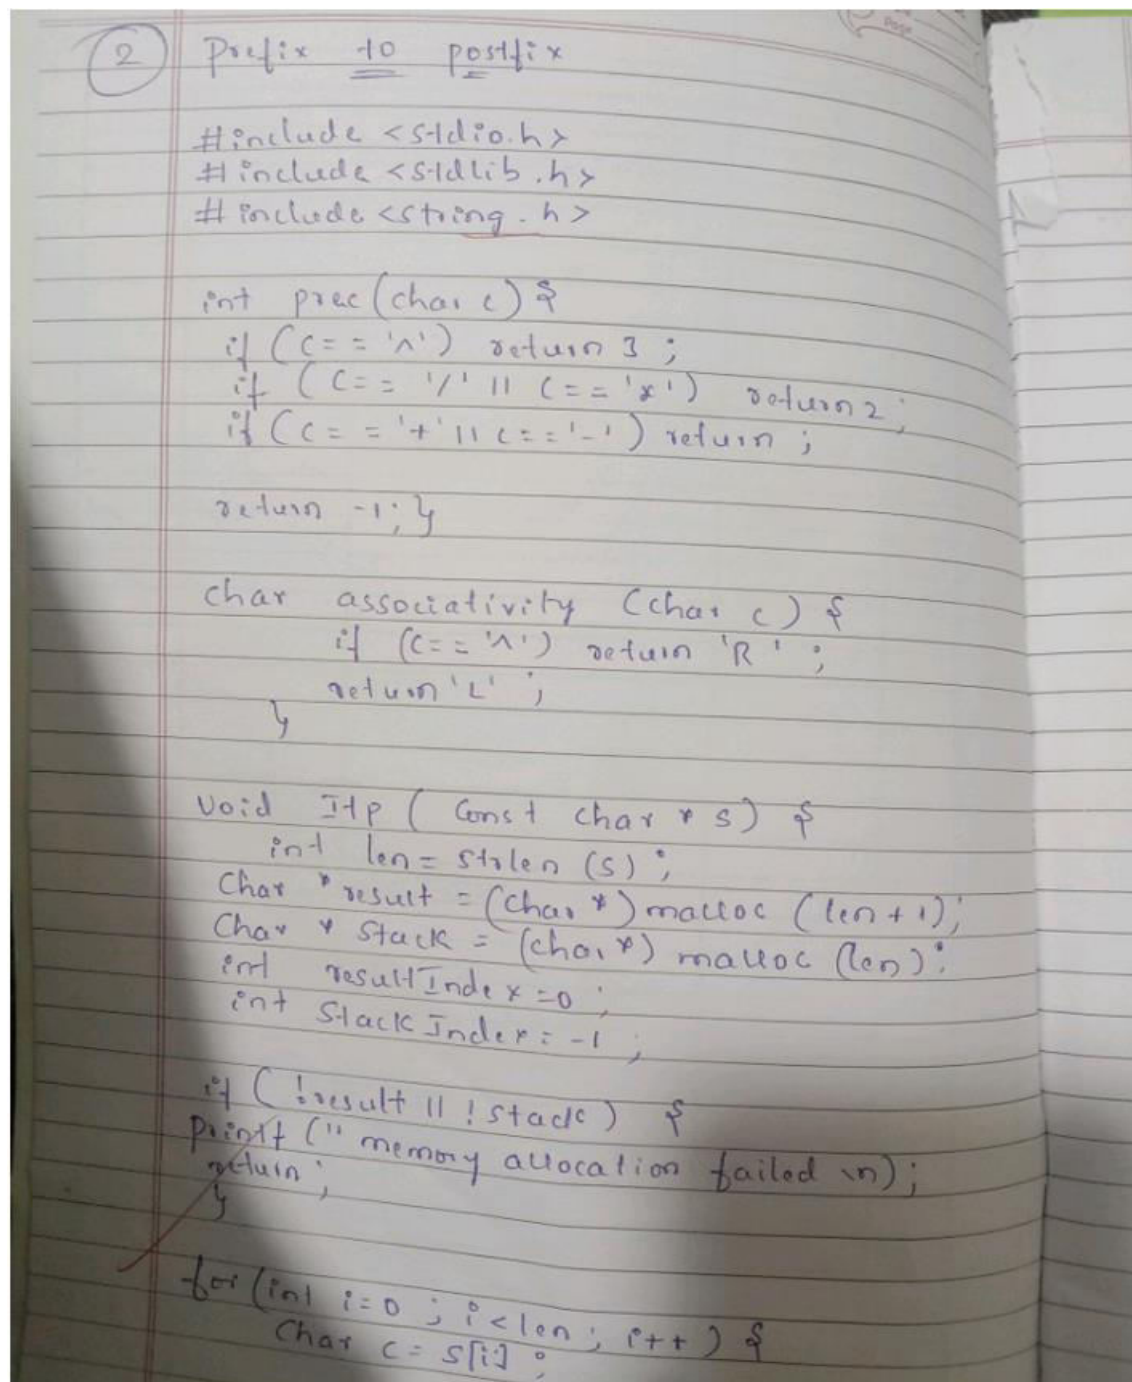 2 Prefix to postfix
#include <stdio.h>
#include <stdlib.h>
#include <string.h>
int prec(char c) {
if (c == '^') return 3 ;
if (c == '/' || c == '*') return 2;
if (c == '+' || c == '-') return ;
return -1; }
char associativity (char c) {
if (c == '^') return 'R' ;
return 'L' ;
}
void Itp ( Const char * s) {
int len = strlen (s) ;
Char * result = (char *) malloc (len + 1);
Char * Stack = (char*) malloc (len);
int resultIndex = 0 ;
int StackIndex = -1 ;
if ( !result || ! stack ) {
printf (" memory allocation failed \n) ;
return ;
}
for (int i = 0 ; i < len ; i++ ) {
Char c = s[i] ;